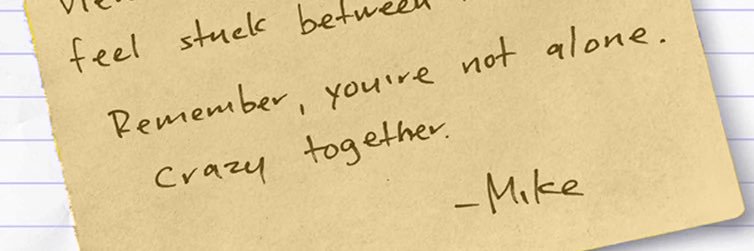 feel stuck between
Remember, you're not alone.
crazy together.
-Mike